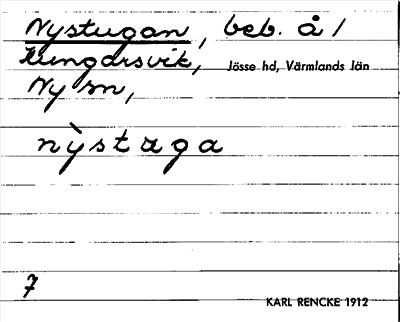 Nystugan, beb. å /
Kungarsvik, Jösse hd, Värmlands län
Ny sn,
nỳstaga
7
KARL RENCKE 1912